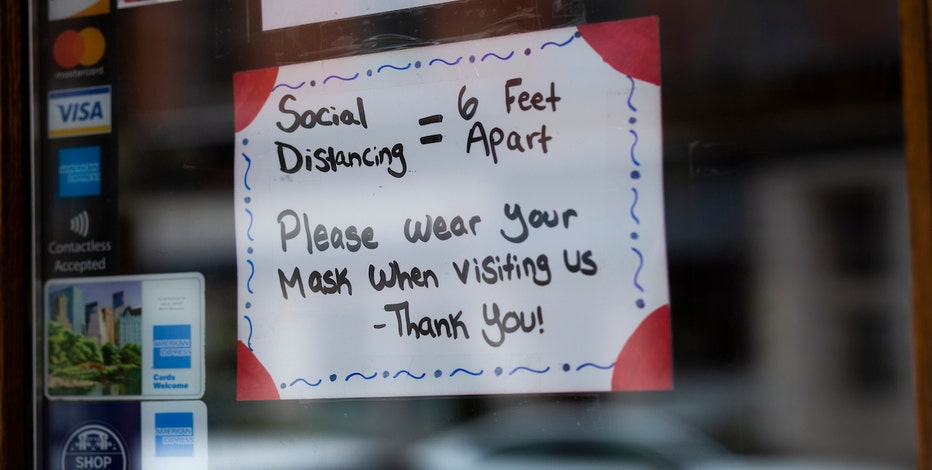 mastercard
VISA
AMERICAN EXPRESS
Contactless
Accepted
AMERICAN
EXPRESS
Cards
Welcome
AMERICAN
EXPRESS
SHOP
Social
Distancing
= 6 Feet
Apart
Please wear your
Mask when visiting us
-Thank you!